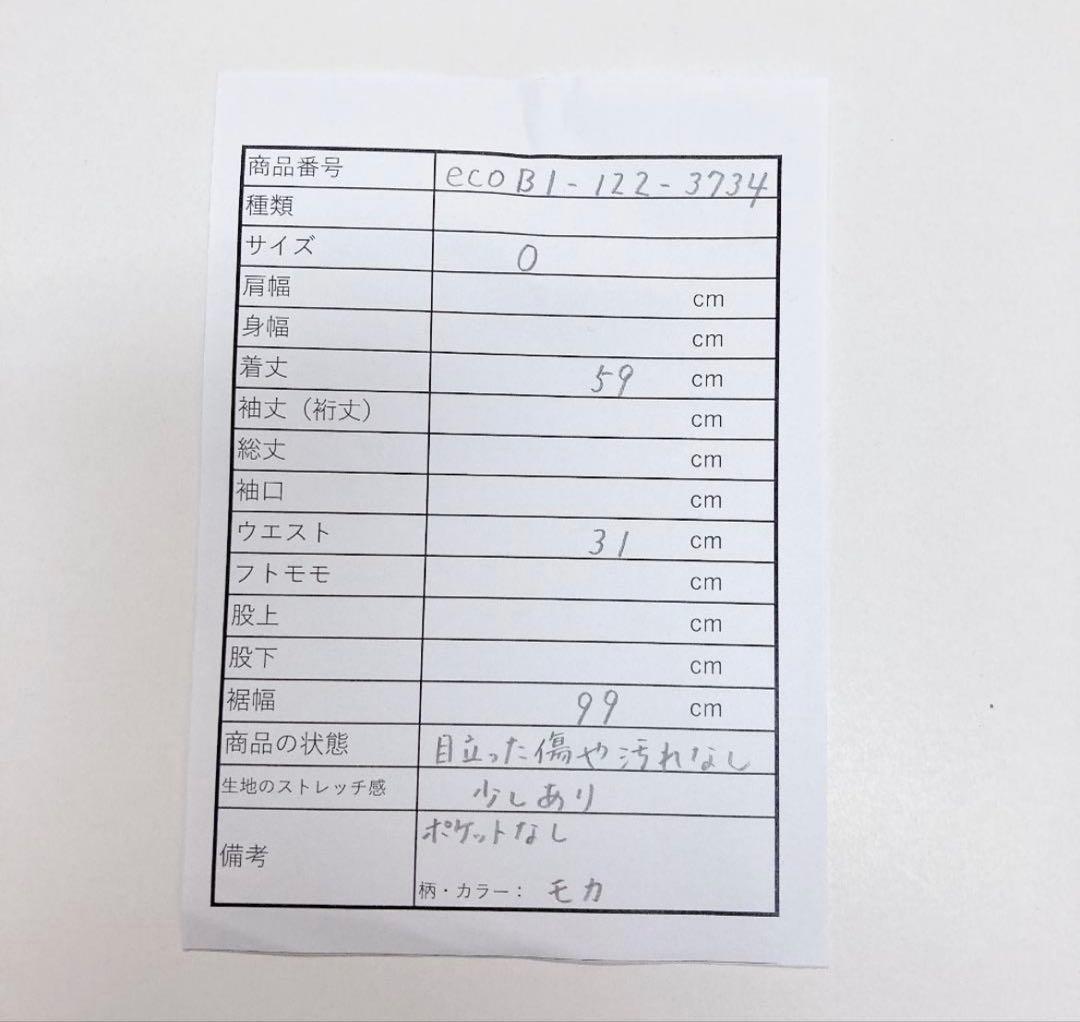 商品番号 ecoB1-122-3734
種類
サイズ 0
肩幅 cm
身幅 cm
着丈 59 cm
袖丈（裄丈） cm
総丈 cm
袖口 cm
ウエスト 31 cm
フトモモ cm
股上 cm
股下 cm
裾幅 99 cm
商品の状態 目立った傷や汚れなし
生地のストレッチ感 少しあり
備考 ポケットなし
柄・カラー： モカ